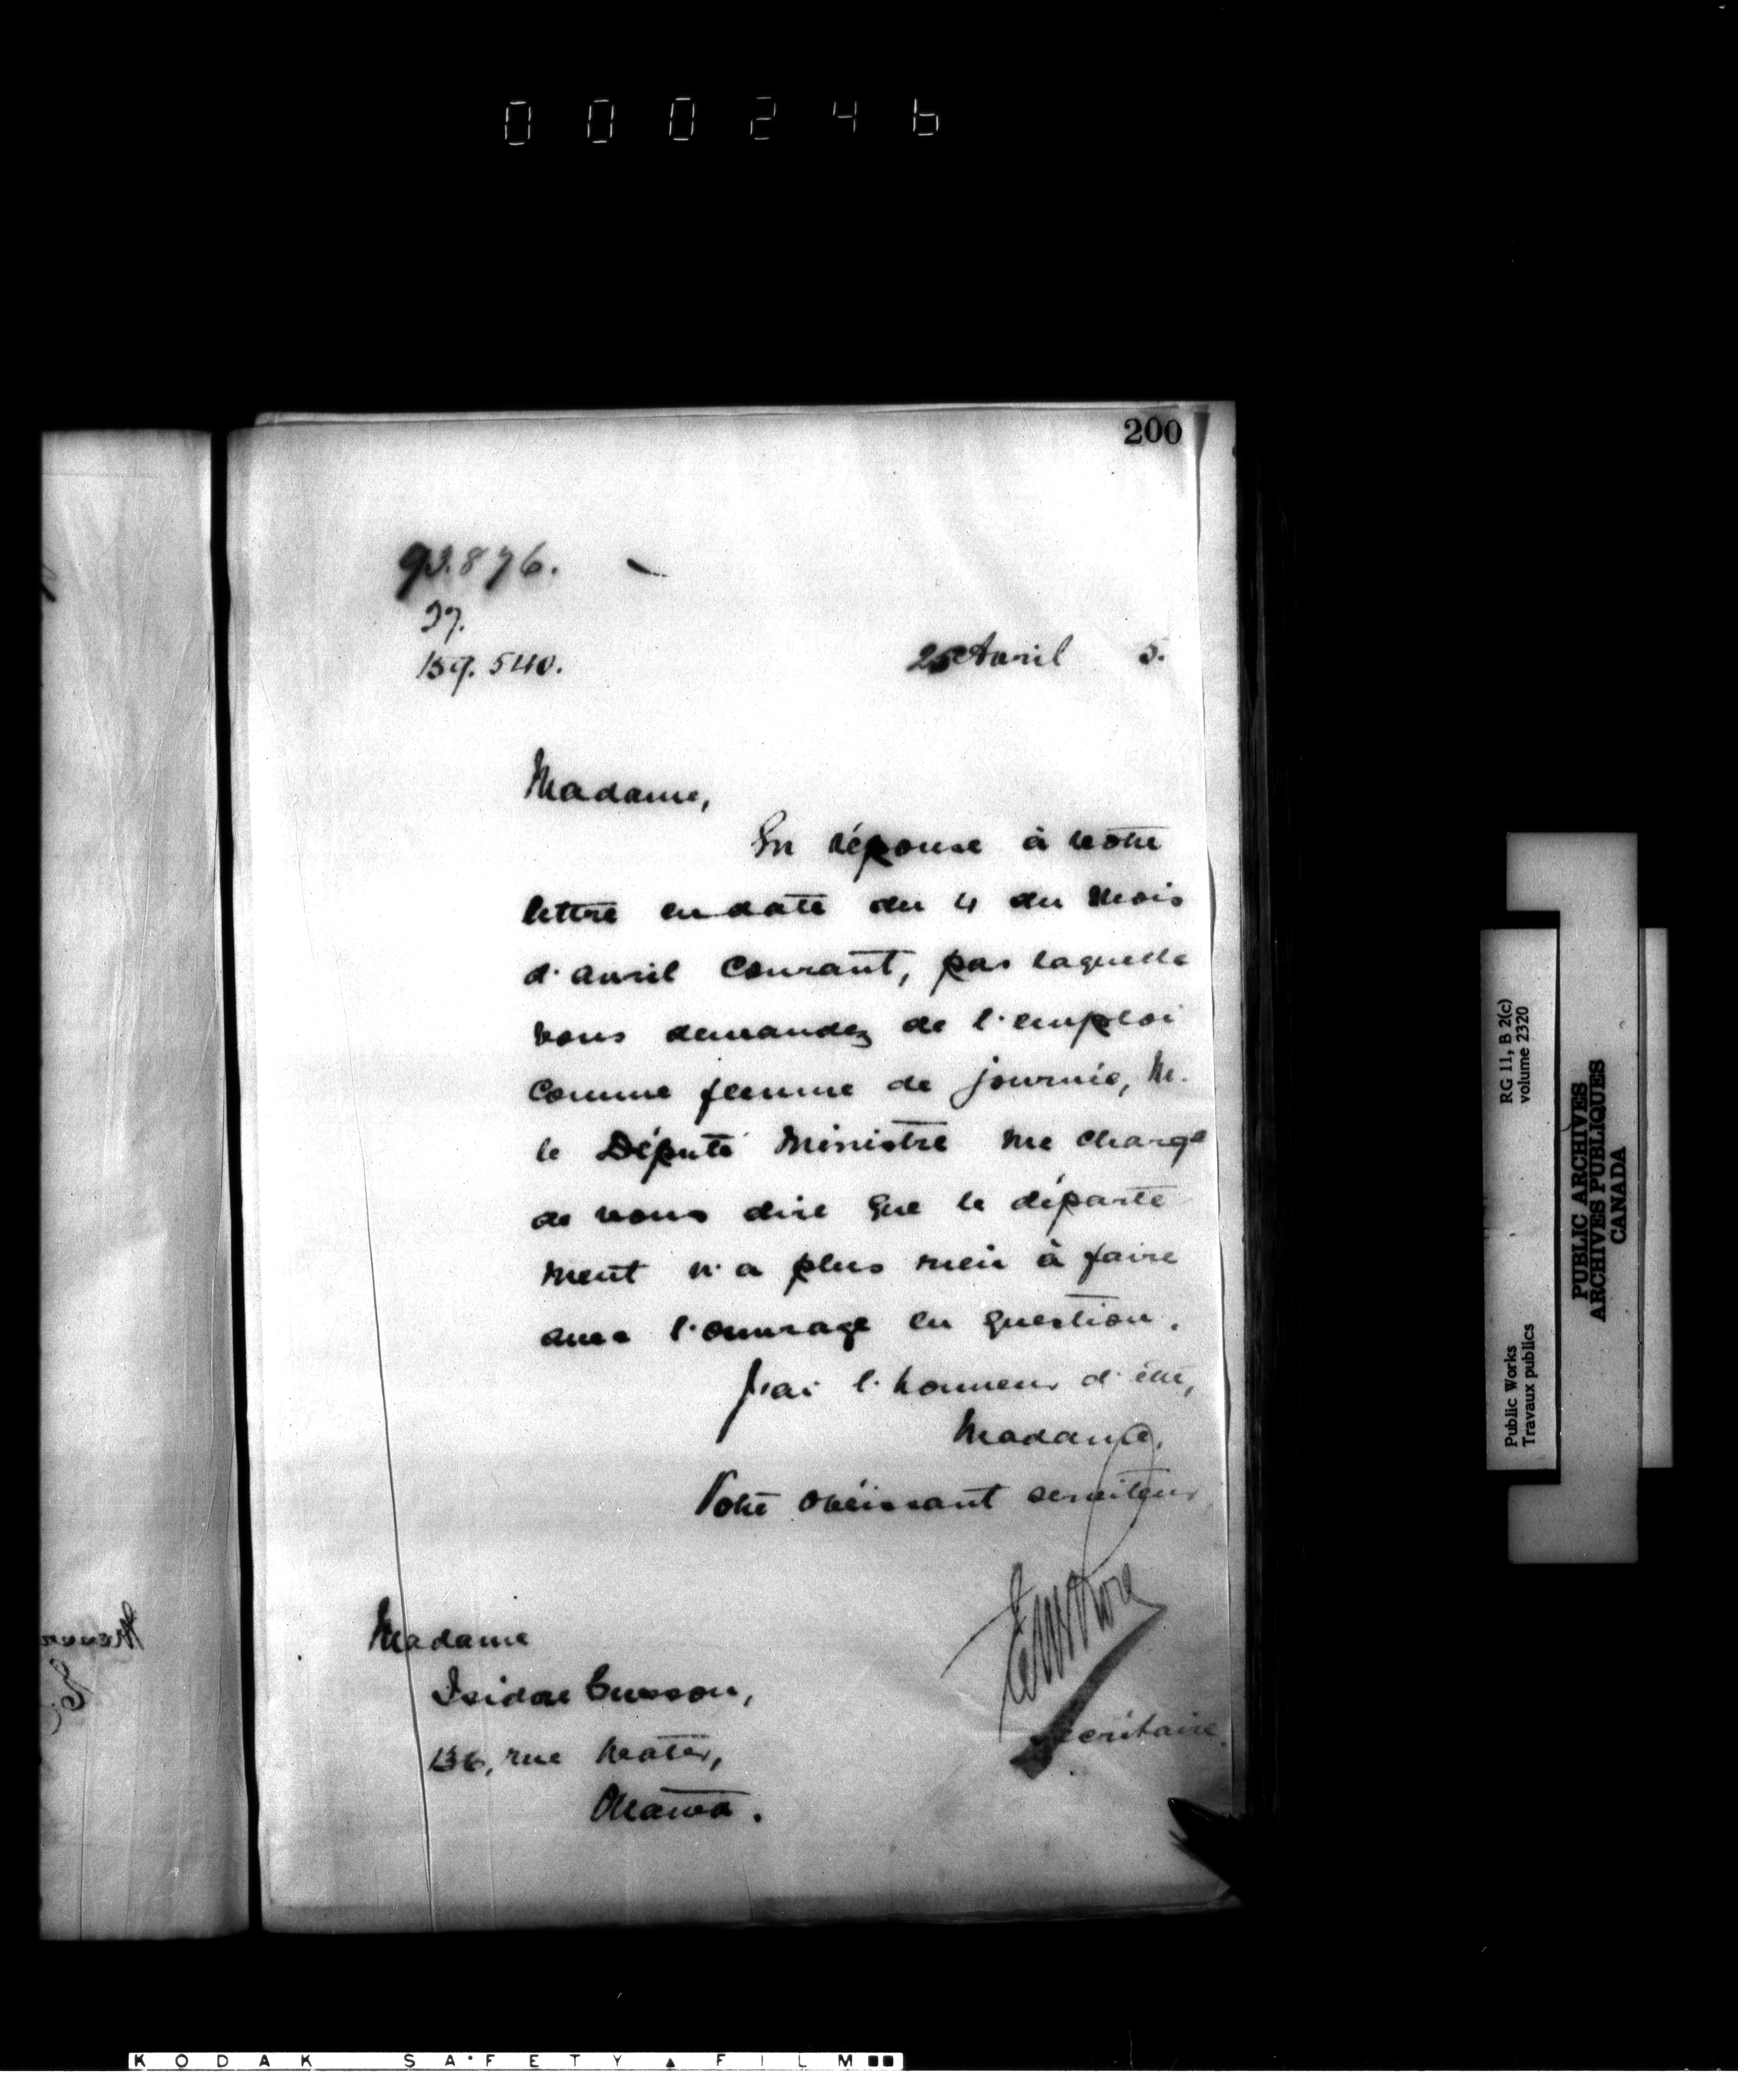 000246
200
93.876.
37.
159.540.
25 Avril 5.
Madame,
En réponse à votre
lettre en date du 4 du mois
d'avril courant, par laquelle
vous demandez de l'emploi
comme femme de journée, M.
le Député Ministre me charge
de vous dire que le départe
ment n'a plus rien à faire
avec l'ouvrage en question.
J'ai l'honneur d'être,
Madame,
Votre obéissant serviteur,
Secrétaire.
Madame
Isidore Cusson,
136, rue Water,
Ottawa.
RG 11, B 2(c)
volume 2320
Public Works
Travaux publics
PUBLIC ARCHIVES
ARCHIVES PUBLIQUES
CANADA
KODAK SAFETY FILM